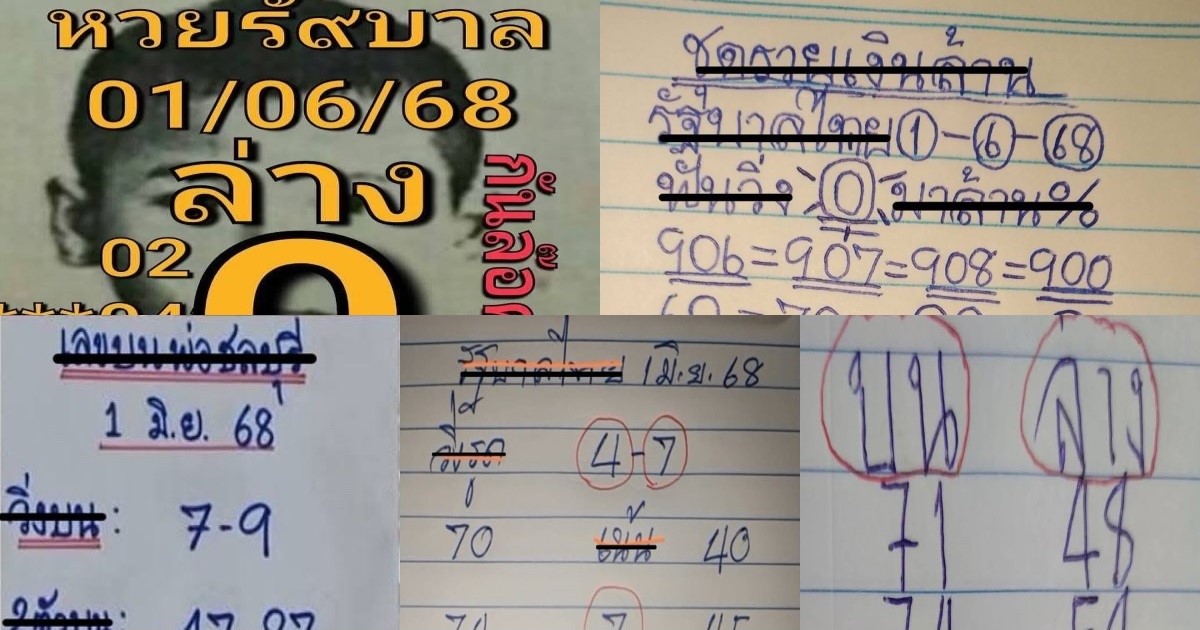 หวยรั๙บาล
01/06/68
ล่าง
กันล๊อค
02
ชุดรวยเงินล้าน
รัฐบาลไทย 1-6-68
ฟันวิ่ง 0 มาล้าน%
906=907=908=900
เลขบนพ่อชลบุรี
1 มิ.ย. 68
วิ่งบน: 7-9
2ตัวบน: 47-97
รัฐบาลไทย 1 มิ.ย. 68
4-7
70 เน้น 40
74 7 45
บน ล่าง
71 48
74 54